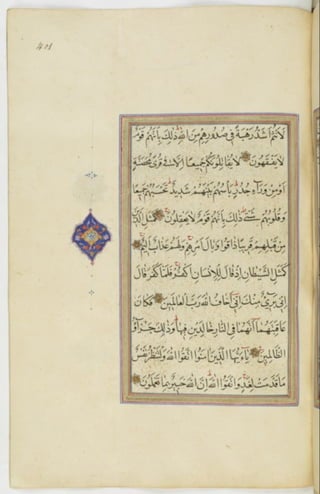 401
لَأَنْتُمْ أَشَدُّ رَهْبَةً فِي صُدُورِهِمْ مِنَ اللَّهِ ذَلِكَ بِأَنَّهُمْ قَوْمٌ
لَا يَفْقَهُونَ لَا يُقَاتِلُونَكُمْ جَمِيعًا إِلَّا فِي قُرًى مُحَصَّنَةٍ
أَوْ مِنْ وَرَاءِ جُدُرٍ بَأْسُهُمْ بَيْنَهُمْ شَدِيدٌ تَحْسَبُهُمْ جَمِيعًا
وَقُلُوبُهُمْ شَتَّى ذَلِكَ بِأَنَّهُمْ قَوْمٌ لَا يَعْقِلُونَ كَمَثَلِ الَّذِينَ
مِنْ قَبْلِهِمْ قَرِيبًا ذَاقُوا وَبَالَ أَمْرِهِمْ وَلَهُمْ عَذَابٌ أَلِيمٌ
كَمَثَلِ الشَّيْطَانِ إِذْ قَالَ لِلْإِنْسَانِ اكْفُرْ فَلَمَّا كَفَرَ قَالَ
إِنِّي بَرِيءٌ مِنْكَ إِنِّي أَخَافُ اللَّهَ رَبَّ الْعَالَمِينَ فَكَانَ
عَاقِبَتَهُمَا أَنَّهُمَا فِي النَّارِ خَالِدَيْنِ فِيهَا وَذَلِكَ جَزَاءُ
الظَّالِمِينَ يَا أَيُّهَا الَّذِينَ آمَنُوا اتَّقُوا اللَّهَ وَلْتَنْظُرْ نَفْسٌ
مَا قَدَّمَتْ لِغَدٍ وَاتَّقُوا اللَّهَ إِنَّ اللَّهَ خَبِيرٌ بِمَا تَعْمَلُونَ